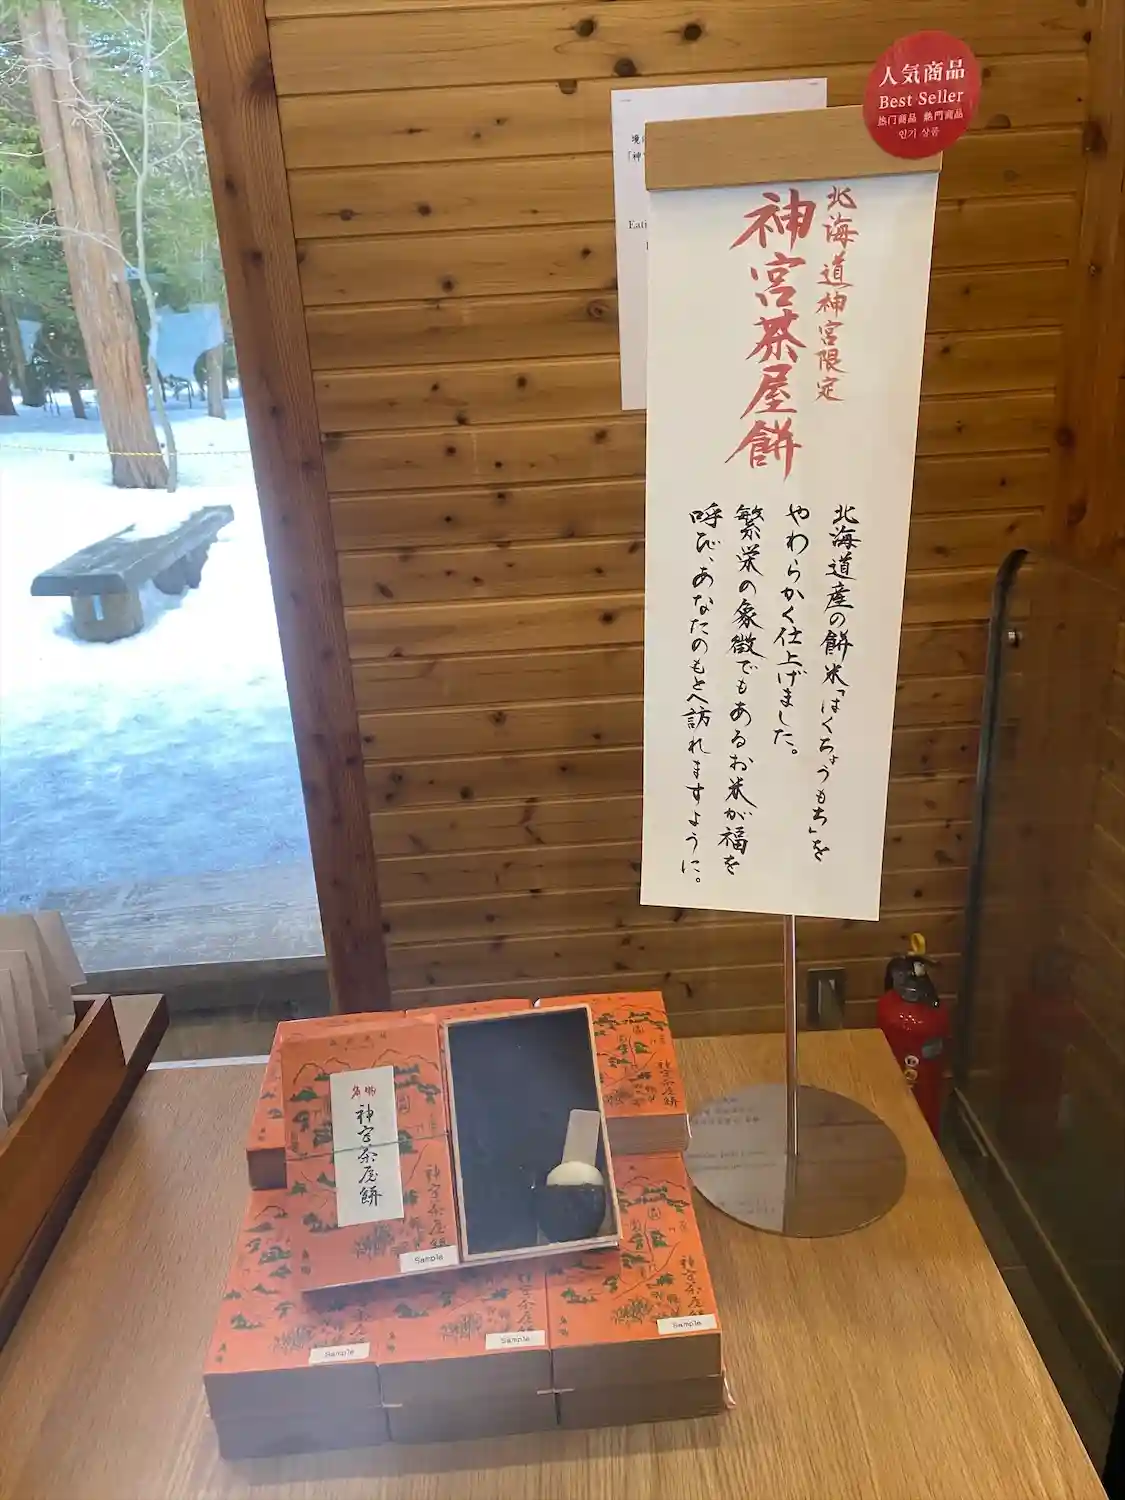 人気商品
Best Seller
热门商品 熱門商品
인기 상품
北海道神宮限定
神宮茶屋餅
北海道産の餅米「はくちょうもち」を
やわらかく仕上げました。
繁栄の象徴でもあるお米が福を
呼び、あなたのもとへ訪れますように。
境
「神
Eati
名物
神宮茶屋餅
神宮茶屋餅
神宮茶屋餅
Sample
Sample
Sample
神宮茶屋餅
Sample